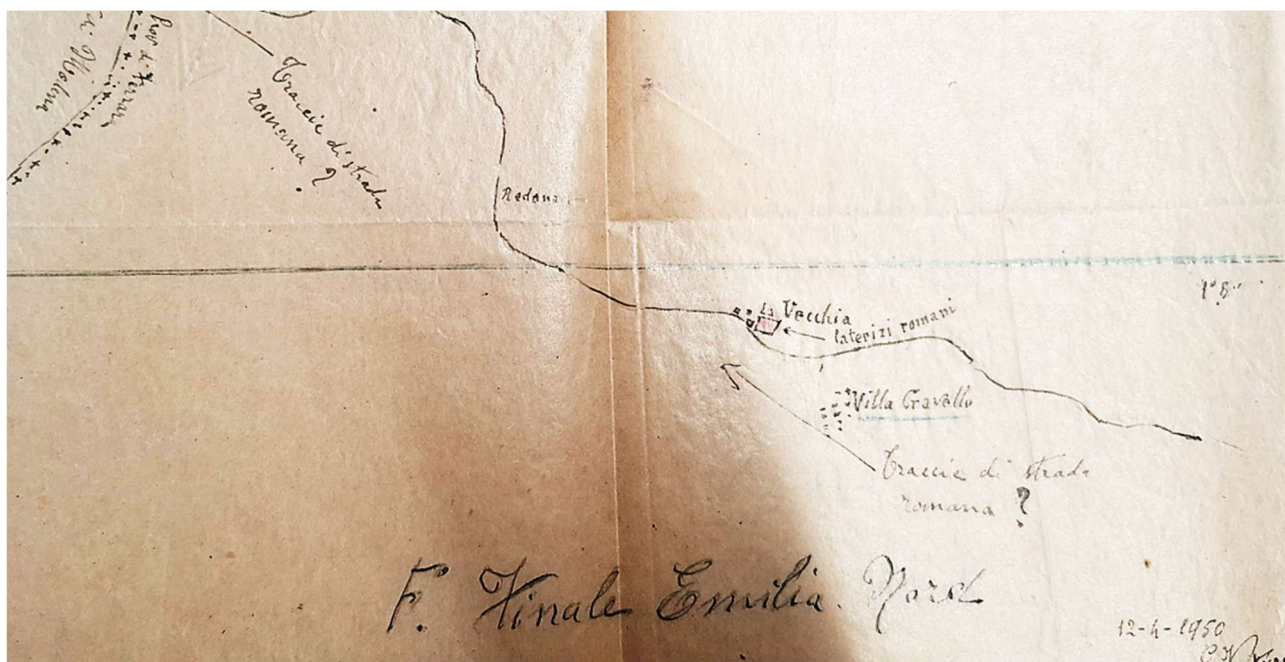 Prov. di Ferrara
di Modena
Traccie di strada
romana ?
Redena
La Vecchia
laterizi romani
1° 8'
Villa Gravello
Traccie di strada
romana ?
F. Finale Emilia Nord
12-4-1950